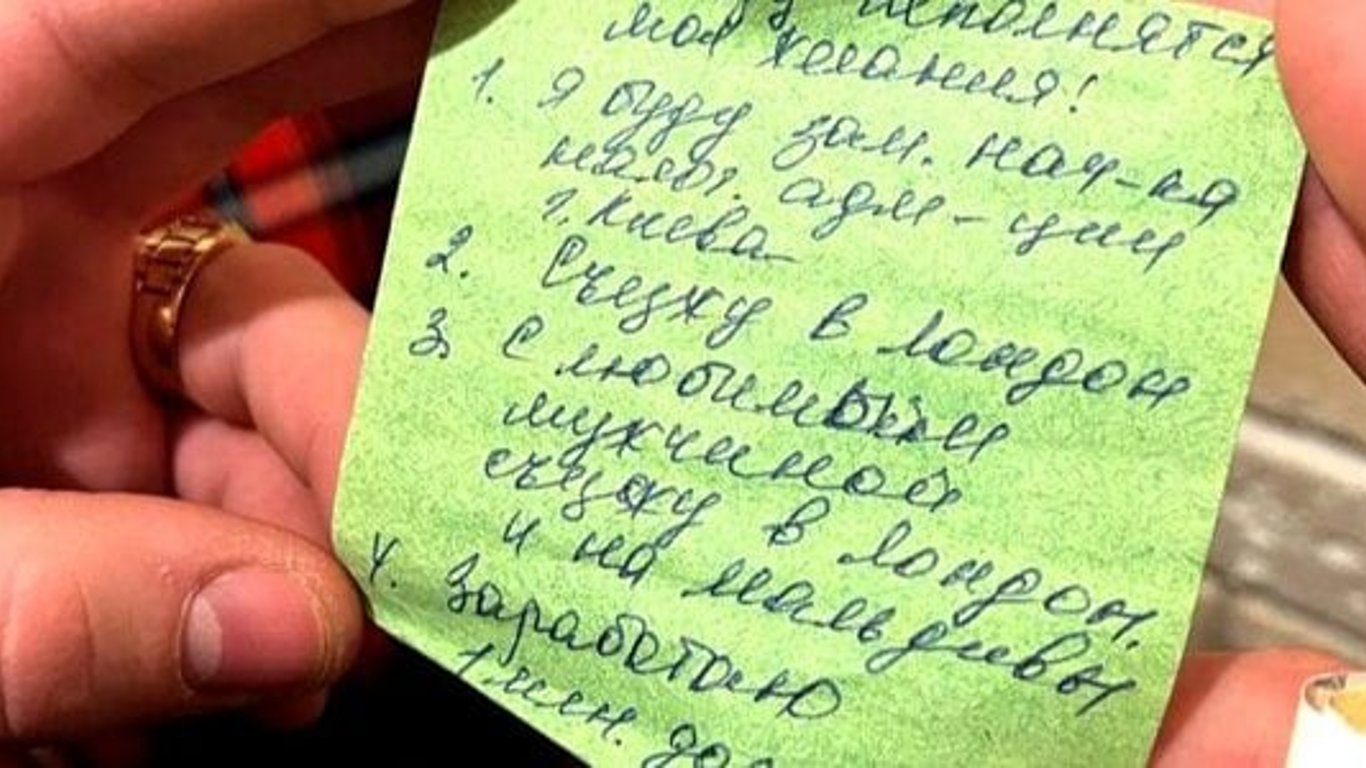 исполнятся
мои желания!
1. Я буду зам. нач-ка
налог. адм-ции
г. Киева
2. Съезжу в Лондон
3. С любимым
мужчиной
съезжу в Лондон.
и на Мальдивы
4. Заработаю
1 млн. дол